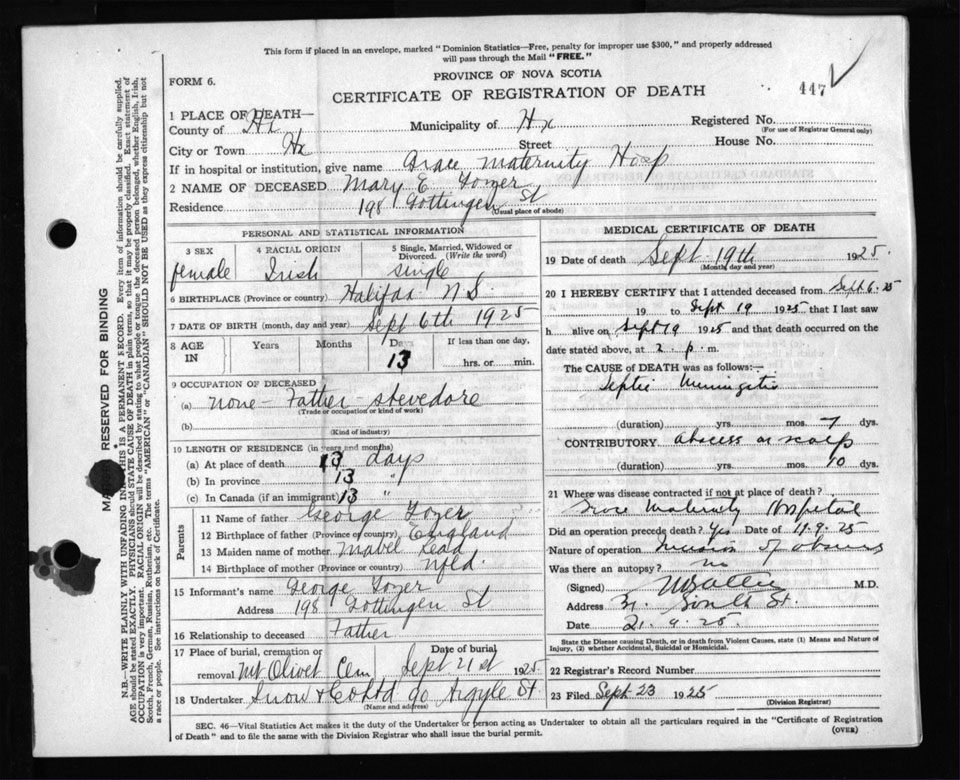 This form if placed in an envelope, marked "Dominion Statistics—Free, penalty for improper use $300," and properly addressed
will pass through the Mail "FREE."
FORM 6.
PROVINCE OF NOVA SCOTIA
CERTIFICATE OF REGISTRATION OF DEATH
447
1 PLACE OF DEATH—
County of Hx Municipality of Hx Registered No.
(For use of Registrar General only)
City or Town Hx Street House No.
If in hospital or institution, give name Grace Maternity Hosp
2 NAME OF DECEASED Mary E
Residence 198 Gottingen St
(Usual place of abode)
PERSONAL AND STATISTICAL INFORMATION
3 SEX 4 RACIAL ORIGIN 5 Single, Married, Widowed or Divorced. (Write the word)
female Irish single
6 BIRTHPLACE (Province or country) Halifax N S.
7 DATE OF BIRTH (month, day and year) Sept 6th 1925
8 AGE IN Years Months Days 13 If less than one day, hrs. or min.
9 OCCUPATION OF DECEASED
(a) none - Father - stevedore
(Trade or occupation or kind of work)
(b)
(Kind of industry)
10 LENGTH OF RESIDENCE (in years and months)
(a) At place of death 13 days
(b) In province 13 "
(c) In Canada (if an immigrant) 13 "
Parents
11 Name of father George
12 Birthplace of father (Province or country) England
13 Maiden name of mother Mabel
14 Birthplace of mother (Province or country) Nfld.
15 Informant's name George
Address 198 Gottingen St
16 Relationship to deceased Father
17 Place of burial, cremation or removal Mt Olivet Cem Date of burial Sept 21st 1925
18 Undertaker Snow & Co Ltd 90 Argyle St
(Name and address)
MEDICAL CERTIFICATE OF DEATH
19 Date of death Sept 19th 1925.
(Month, day and year)
20 I HEREBY CERTIFY that I attended deceased from Sept 6. 25
19 to Sept 19 1925 that I last saw
h alive on Sept 19 1925 and that death occurred on
date stated above, at 2 p. m.
The CAUSE of DEATH was as follows:—
Septic Meningitis
(duration) yrs. mos. 7 dys.
CONTRIBUTORY abscess on scalp
(duration) yrs. mos. 10 dys.
21 Where was disease contracted if not at place of death?
Grace Maternity Hospital
Did an operation precede death? Yes Date of 11.9.25
Nature of operation Incision of abscess
Was there an autopsy? no
(Signed) M.D.
Address South St.
Date 21.9.25.
State the Disease causing Death, or in death from Violent Causes, state (1) Means and Nature of
Injury, (2) whether Accidental, Suicidal or Homicidal.
22 Registrar's Record Number
23 Filed Sept 23 1925
(Division Registrar)
SEC. 46—Vital Statistics Act makes it the duty of the Undertaker or person acting as Undertaker to obtain all the particulars required in the "Certificate of Registration
of Death" and to file the same with the Division Registrar who shall issue the burial permit.
(OVER)
MARGIN RESERVED FOR BINDING
N.B.—WRITE PLAINLY WITH UNFADING INK—THIS IS A PERMANENT RECORD. Every item of information should be carefully supplied.
AGE should be stated EXACTLY. PHYSICIANS should STATE CAUSE OF DEATH in plain terms, so that it may be properly classified. Exact statement of
OCCUPATION is very important. RACIAL ORIGIN will be described by stating to what people or tongue the deceased person belonged, whether English, Irish,
Scotch, French, German, Russian, Ruthenian, etc. The terms "AMERICAN" or "CANADIAN" SHOULD NOT BE USED as they express citizenship but not
a race or people. See instructions on back of Certificate.